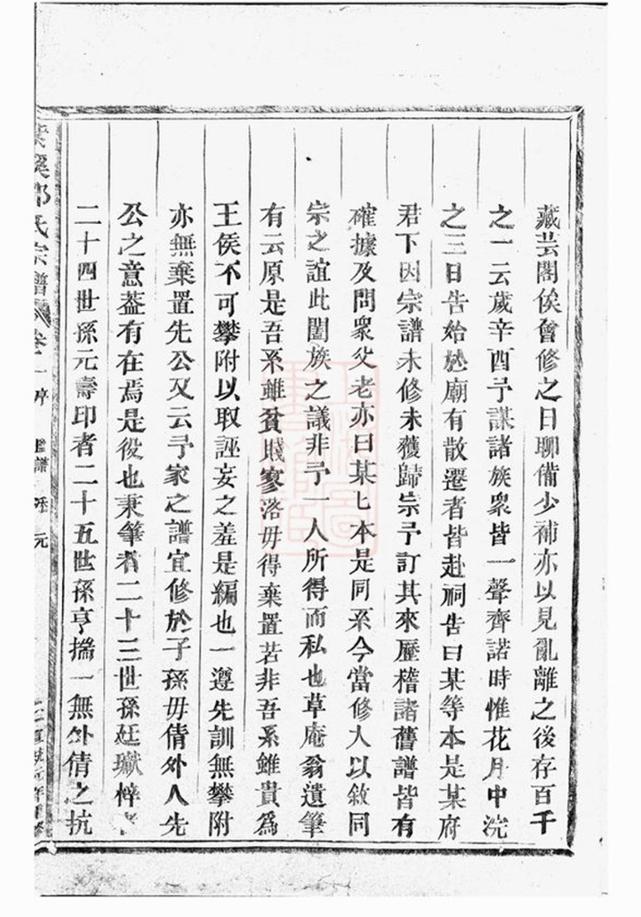 藏芸閣俟會修之日聊備少補亦以見亂離之後存百千
之一云歲辛酉予謀諸族衆皆一聲齊諾時惟花月中浣
之三日告始於廟有散遷者皆赴祠告曰某等本是某府
君下因宗譜未修未獲歸宗予訂其來歷稽諸舊譜皆有
確據及問衆父老亦曰某匕本是同系今當修人以敘同
宗之誼此闔族之議非予一人所得而私也草庵翁遺筆
有云原是吾系雖貧賤寥落毋得棄置若非吾系雖貴為
王侯不可攀附以取誣妄之羞是編也一遵先訓無攀附
亦無棄置先公又云予家之譜宜修於子孫毋倩外人先
公之意蓋有在焉是役也秉筆者二十三世孫廷獻梓者
二十四世孫元壽印者二十五世孫亨揣一無外倩之抗
溪 氏宗譜 卷一